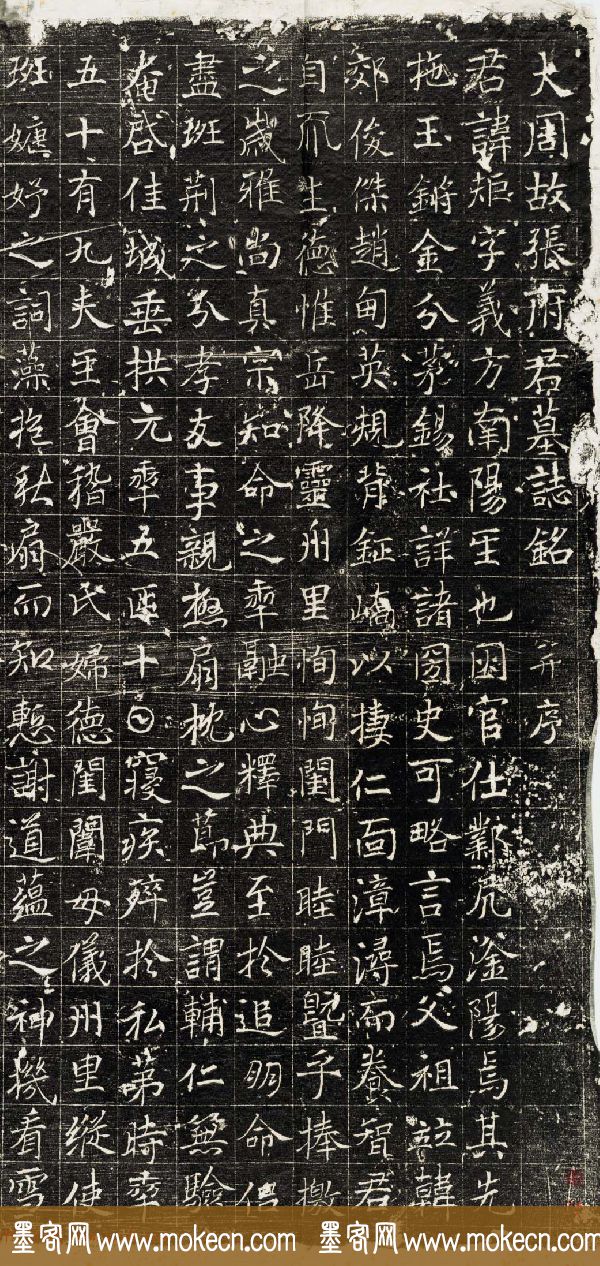 大周故張府君墓誌銘 并序
君諱矩字義方南陽𤯔也因官仕鄴凥滏陽焉其先
拖玉鏘金分茅錫社詳諸圀史可略言焉父祖並韓
郊俊傑趙甸英規背鉦嶠以捿仁面漳潯而養智君
自𠀑生德惟岳降靈州里恂恂閨門睦睦曁乎捧檄
之歲雅尚真宗知命之𠡦融心釋典至於追朋命侶
盡班荆之分孝友事親極扇枕之節豈謂輔仁無驗
奄啓佳城垂拱元𠡦五𠥱十𡆠寢疾殫於私第時𠡦
五十有九夫𤯔會稽嚴氏婦德閨闈母儀州里縱使
班婕妤之詞藻抱秋扇而知慙謝道蘊之神機看雪
墨客网 www.mokecn.com 墨客网 www.mokecn.com